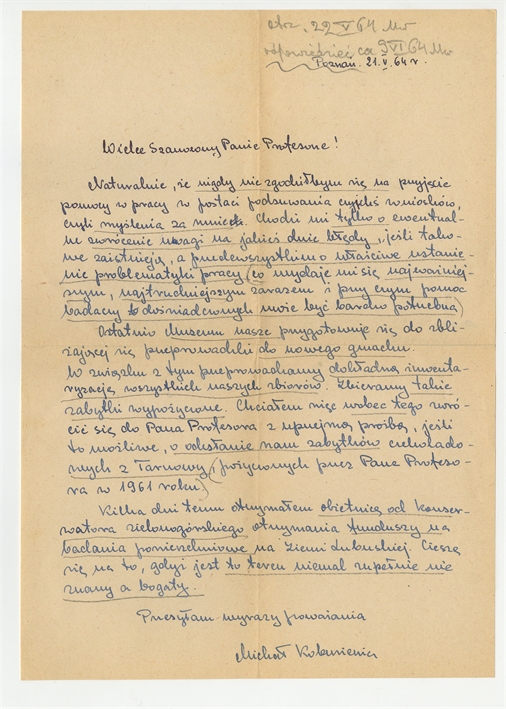 otrz. 22 V 64 Mw
odpowiedzieć ca 9 VI 64 Mw
Poznań. 21. V. 64 r.
Wielce Szanowny Panie Profesorze!
Naturalnie, że nigdy nie zgodziłbym się na przyjęcie
pomocy w pracy w postaci podsuwania czyichś wniosków,
czyli myślenia za mnie. Chodzi mi tylko o ewentual-
ne zwrócenie uwagi na jakieś duże błędy, jeśli tako-
we zaistnieją, a przedewszystkim o właściwe ustawie-
nie problematyki pracy (co wydaje mi się najważniej-
szym, najtrudniejszym zarazem i przy czym pomoc
badaczy doświadczonych może być bardzo potrzebna)
Ostatnio Muzeum nasze przygotowuje się do zbli-
żającej się przeprowadzki do nowego gmachu.
W związku z tym przeprowadzamy dokładną inwenta-
ryzację wszystkich naszych zbiorów. Zbieramy także
zabytki wypożyczone. Chciałem więc wobec tego zwró-
cić się do Pana Profesora z uprzejmą prośbą, jeśli
to możliwe, o odesłanie nam zabytków
z Tarnowy (pożyczonych przez Pana Profeso-
ra w 1961 roku)
Kilka dni temu otrzymałem obietnicę od konser-
watora zielonogórskiego otrzymania funduszy na
badania powierzchniowe na Ziemi Lubuskiej. Cieszę
się na to, gdyż jest to teren niemal zupełnie nie
znany a bogaty.
Przesyłam wyrazy poważania
Michał Kobusiewicz